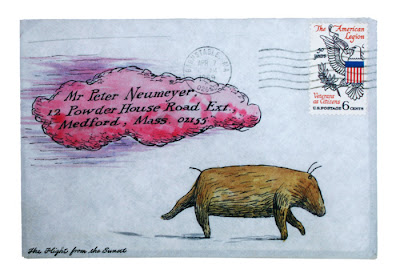 The American
Legion
50
years
Veterans
as Citizens
U.S. POSTAGE 6 CENTS
Mr Peter Neumeyer,
12 Powder House Road Ext.,
Medford, Mass 02155
The Flight from the Sunset